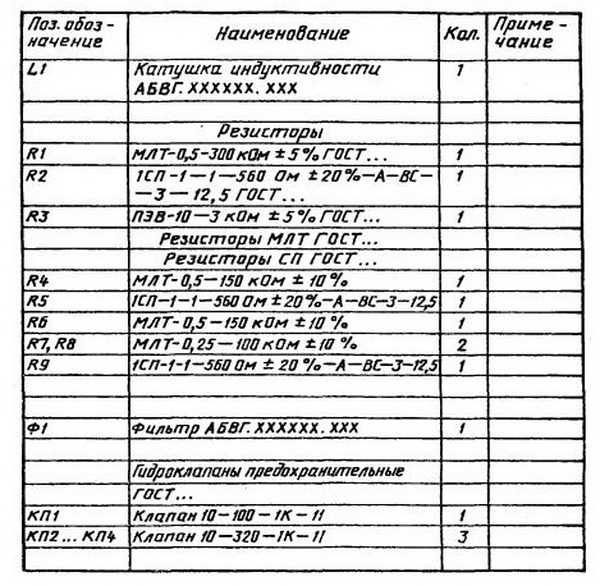 Поз. обоз- Наименование Кол. Приме-
начение чание
L1 Катушка индуктивности 1
АБВГ. XXXXXX. XXX
Резисторы
R1 МЛТ-0,5-300 кОм ± 5% ГОСТ... 1
R2 1СП-1-1-560 Ом ± 20%-А-ВС- 1
-3-12,5 ГОСТ...
R3 ПЭВ-10-3 кОм ± 5% ГОСТ... 1
Резисторы МЛТ ГОСТ...
Резисторы СП ГОСТ...
R4 МЛТ-0,5-150 кОм ± 10% 1
R5 1СП-1-1-560 Ом ± 20%-А-ВС-3-12,5 1
R6 МЛТ-0,5-150 кОм ± 10% 1
R7, R8 МЛТ-0,25-100 кОм ± 10% 2
R9 1СП-1-1-560 Ом ± 20%-А-ВС-3-12,5 1
Ф1 Фильтр АБВГ. XXXXXX. XXX 1
Гидроклапаны предохранительные
ГОСТ...
КП1 Клапан 10-100-1К-11 1
КП2 ... КП4 Клапан 10-320-1К-11 3